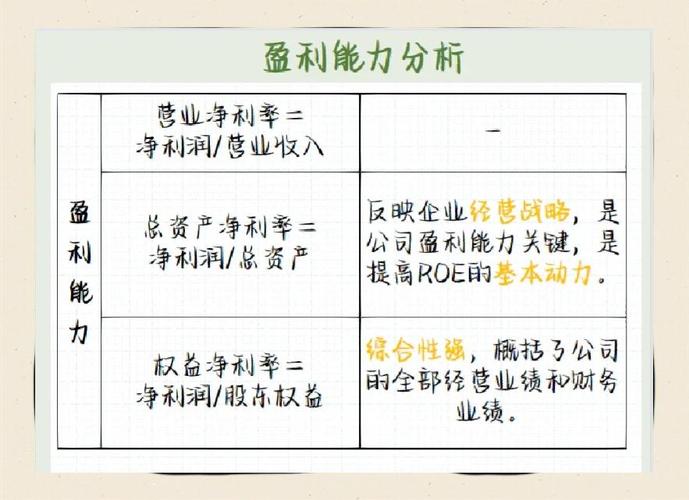 盈利能力分析
盈利能力
营业净利率=
净利润/营业收入
—
总资产净利率=
净利润/总资产
反映企业经营战略，是
公司盈利能力关键，是
提高ROE的基本动力。
权益净利率=
净利润/股东权益
综合性强，概括了公司
的全部经营业绩和财务
业绩。